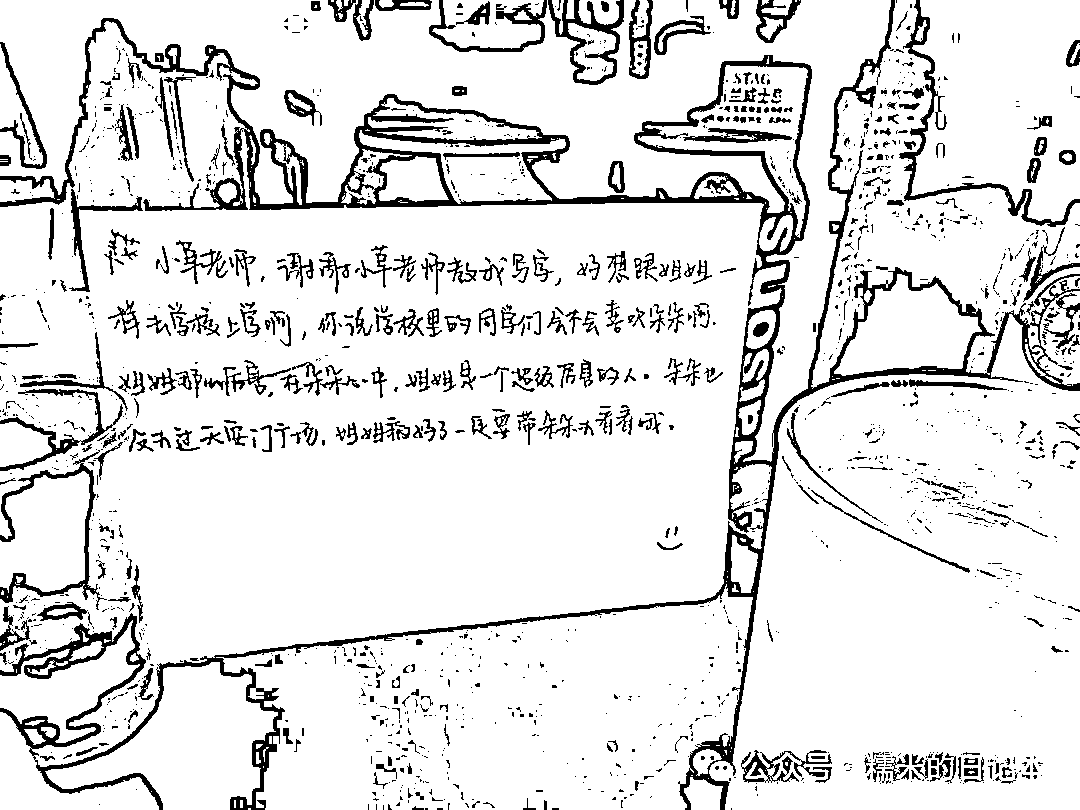 STAG
兰威士忌
小草老师，谢谢小草老师教我写字，好想跟姐姐一
样去学校上学啊，你说学校里的同学们会不会喜欢朵朵啊.
姐姐那么厉害，在朵朵心中，姐姐是一个超级厉害的人。朵朵也
没去过天安门广场，姐姐病好了一定要带朵朵去看看哦。
公众号·糯米的日记本